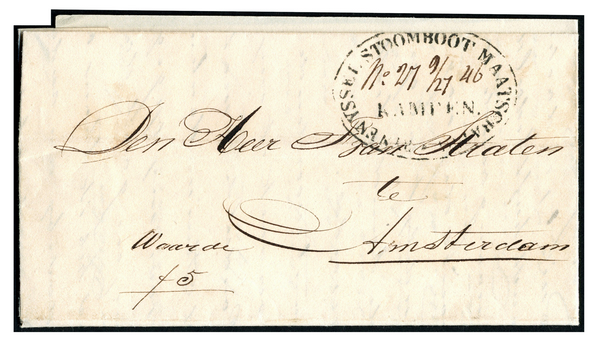 RIJN EN YSSEL STOOMBOOT MAATSCHAP
No 27 9/27 46
KAMPEN.
Den Heer Straten
te
Amsterdam
Waarde
f 5